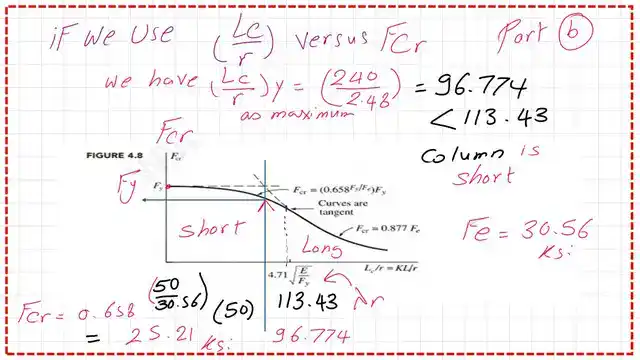 iF we Use (Lc/r) versus FCr Part b
we have (Lc/r)y = (240/2.48) = 96.774
as maximum < 113.43
Column is
short
Fcr
FIGURE 4.8 F_cr
Fy F_y F_cr = (0.658^(F_y/F_e))F_y
Curves are
tangent
short F_cr = 0.877 F_e
Long
Fe = 30.56
Ksi
4.71 √(E/F_y) L_c/r = KL/r
Fcr = 0.658^(50/30.56) (50) 113.43 λr
= 25.21 Ksi 96.774